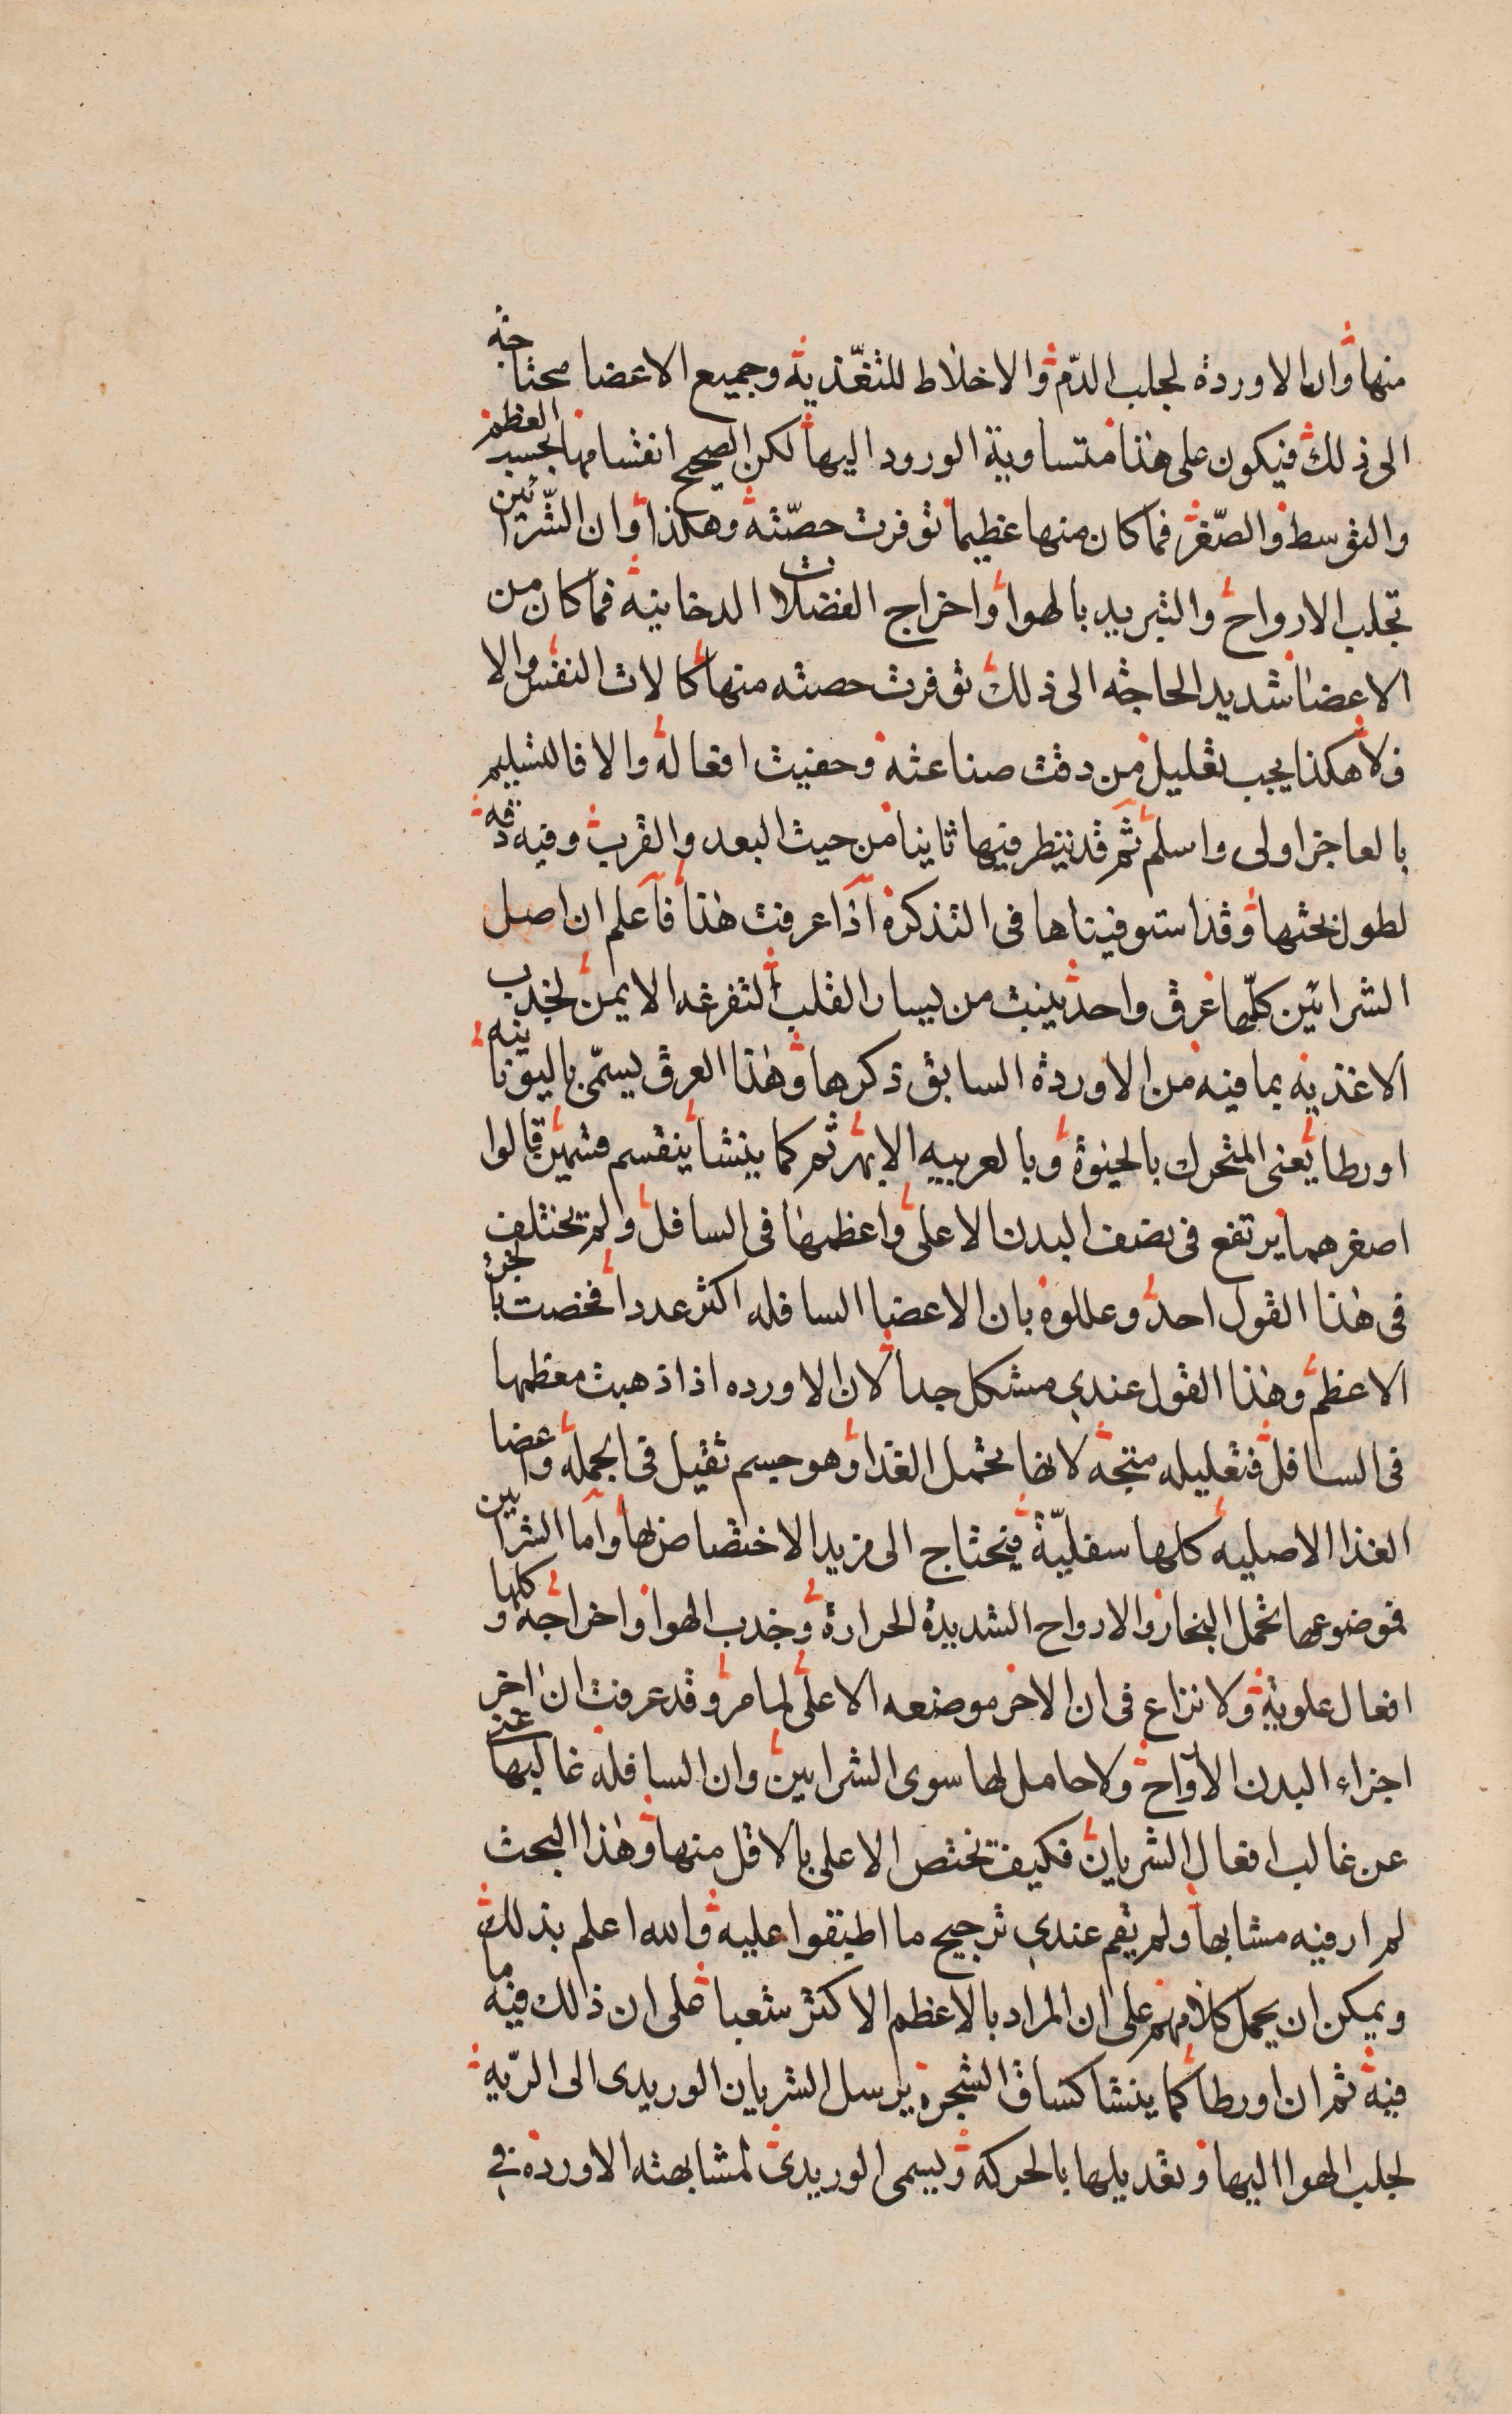 منها وان الاوردة لجلب الدّم والاخلاط للتغّذية وجميع الاعضا محتاجة
الى ذلك فيكون على هذا متساوية الورود اليها لكن الصحيح انقسامها بحسب العظم
والتوسط والصّغر فما كان منها عظيما توفرت حصّته وهكذا وان الشّرائين
تجلب الارواح والتبريد بالهوا واخراج الفضلات الدخانية فما كان من
الاعضا شديد الحاجة الى ذلك توفرت حصته منها كالات النفس والا
فلا هكذا يجب تعليل من دقت صناعته وخفيت افعاله والا فالتسليم
بالعاجز اولى واسلم ثم قد ننظر فيها ثانيا من حيث البعد والقرب وفيه دقة
لطول بحثها وقد استوفيناها فى التذكرة اذا عرفت هذا فاعلم ان اصل
الشرائين كلّها عرق واحد ينبت من يسار القلب لتفرغه الايمن لجذب
الاغذية بما فيه من الاوردة السابق ذكرها وهذا العرق يسمّى باليونانية
اورطا يعنى المتحرك بالحيوة وبالعربيه الابهر ثم كما ينشا ينقسم قسمين قالوا
اصغرهما يرتفع فى نصف البدن الاعلى واعظمها فى السافل ولم تختلف
فى هذا القول احد وعللوه بان الاعضا السافله اكثر عددا فخصت بالجزء
الاعظم وهذا القول عندى مشكل جدا لان الاورده اذا ذهبت معظمها
فى السافل فتعليله متجه لانها تحمل الغذا وهو جسم ثقيل فى الجملة واعضا
الغذا الاصليه كلها سفليّة فيحتاج الى مزيد الاختصاص بها واما الشرايين
فموضوعها تحمل البخار والارواح الشديدة الحرارة وجذب الهوا واخراجه وكلها
افعال علوية ولا نزاع فى ان الاخر موضعه الاعلى لما مر وقد عرفت ان اخر
اجزاء البدن الارواح ولا حامل لها سوى الشرايين وان السافلة غالبها غنى
عن غالب افعال الشريان فكيف تختص الاعلى بالاقل منها وهذا البحث
لم ار فيه مشابها ولم يقم عندى ترجيح ما اطبقوا عليه والله اعلم بذلك
ويمكن ان يحمل كلامهم على ان المراد بالاعظم الاكثر شعبا على ان ذالك فيه ما
فيه ثم ان اورطا كما ينشا كساق الشجرة يرسل الشريان الوريدى الى الرّية
لجلب الهوا اليها وتعديلها بالحركة ويسمى الوريدى لمشابهته الاوردة فى